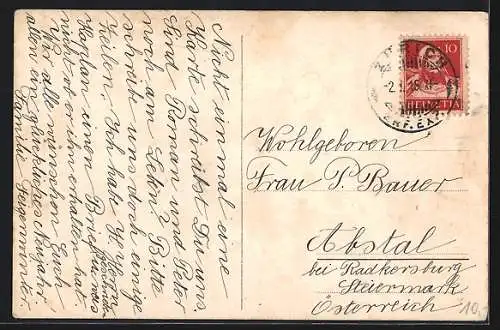 Nicht einmal eine
Karte schreibst Du uns.
Sind Roman und Peter
noch am Leben? Bitte
schreibe uns doch einige
Zeilen. Ich habe H. Herrn
Kaplan einen Brief geschrieben
nicht ob er ihn erhalten hat.
Wir alle wünschen Euch
allen ein glückliches Neujahr.
Familie
Wohlgeboren
Frau P. Bauer
Abstal
bei Radkersburg
Steiermark
Österreich
10
HELVETIA
10.